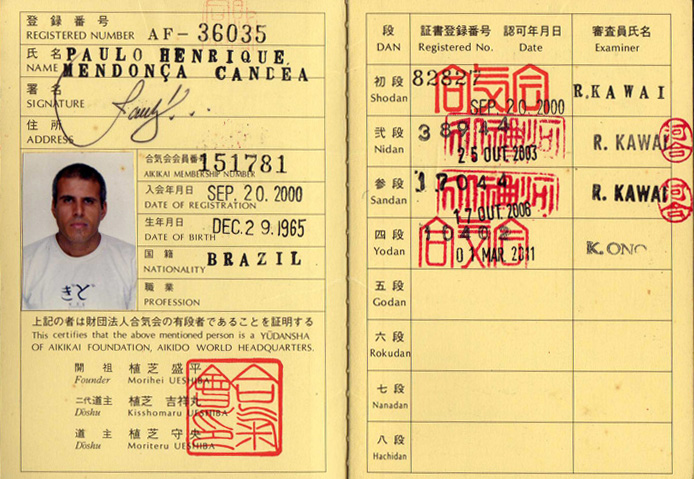 登録番号
REGISTERED NUMBER AF-36035
氏名 PAULO HENRIQUE
NAME MENDONÇA CANDÉA
署名
SIGNATURE
住所
ADDRESS
合気会会員番号 151781
AIKIKAI MEMBERSHIP NUMBER
入会年月日 SEP. 20. 2000
DATE OF REGISTRATION
生年月日 DEC. 29. 1965
DATE OF BIRTH
国籍 BRAZIL
NATIONALITY
職業
PROFESSION
上記の者は財団法人合気会の有段者であることを証明する
This certifies that the above mentioned person is a YŪDANSHA
OF AIKIKAI FOUNDATION, AIKIDO WORLD HEADQUARTERS.
開祖 植芝盛平
Founder Morihei UESHIBA
二代道主 植芝吉祥丸
Dōshu Kisshomaru UESHIBA
道主 植芝守央
Dōshu Moriteru UESHIBA
段 証書登録番号 認可年月日 審査員氏名
DAN Registered No. Date Examiner
初段 82827 R.KAWAI
Shodan SEP. 20. 2000
弐段 38944 R. KAWAI 河合
Nidan 25 OUT 2003
参段 17044 R. KAWAI 河合
Sandan 17 OUT 2008
四段 10402 K.ONO
Yodan 01 MAR 2011
五段
Godan
六段
Rokudan
七段
Nanadan
八段
Hachidan